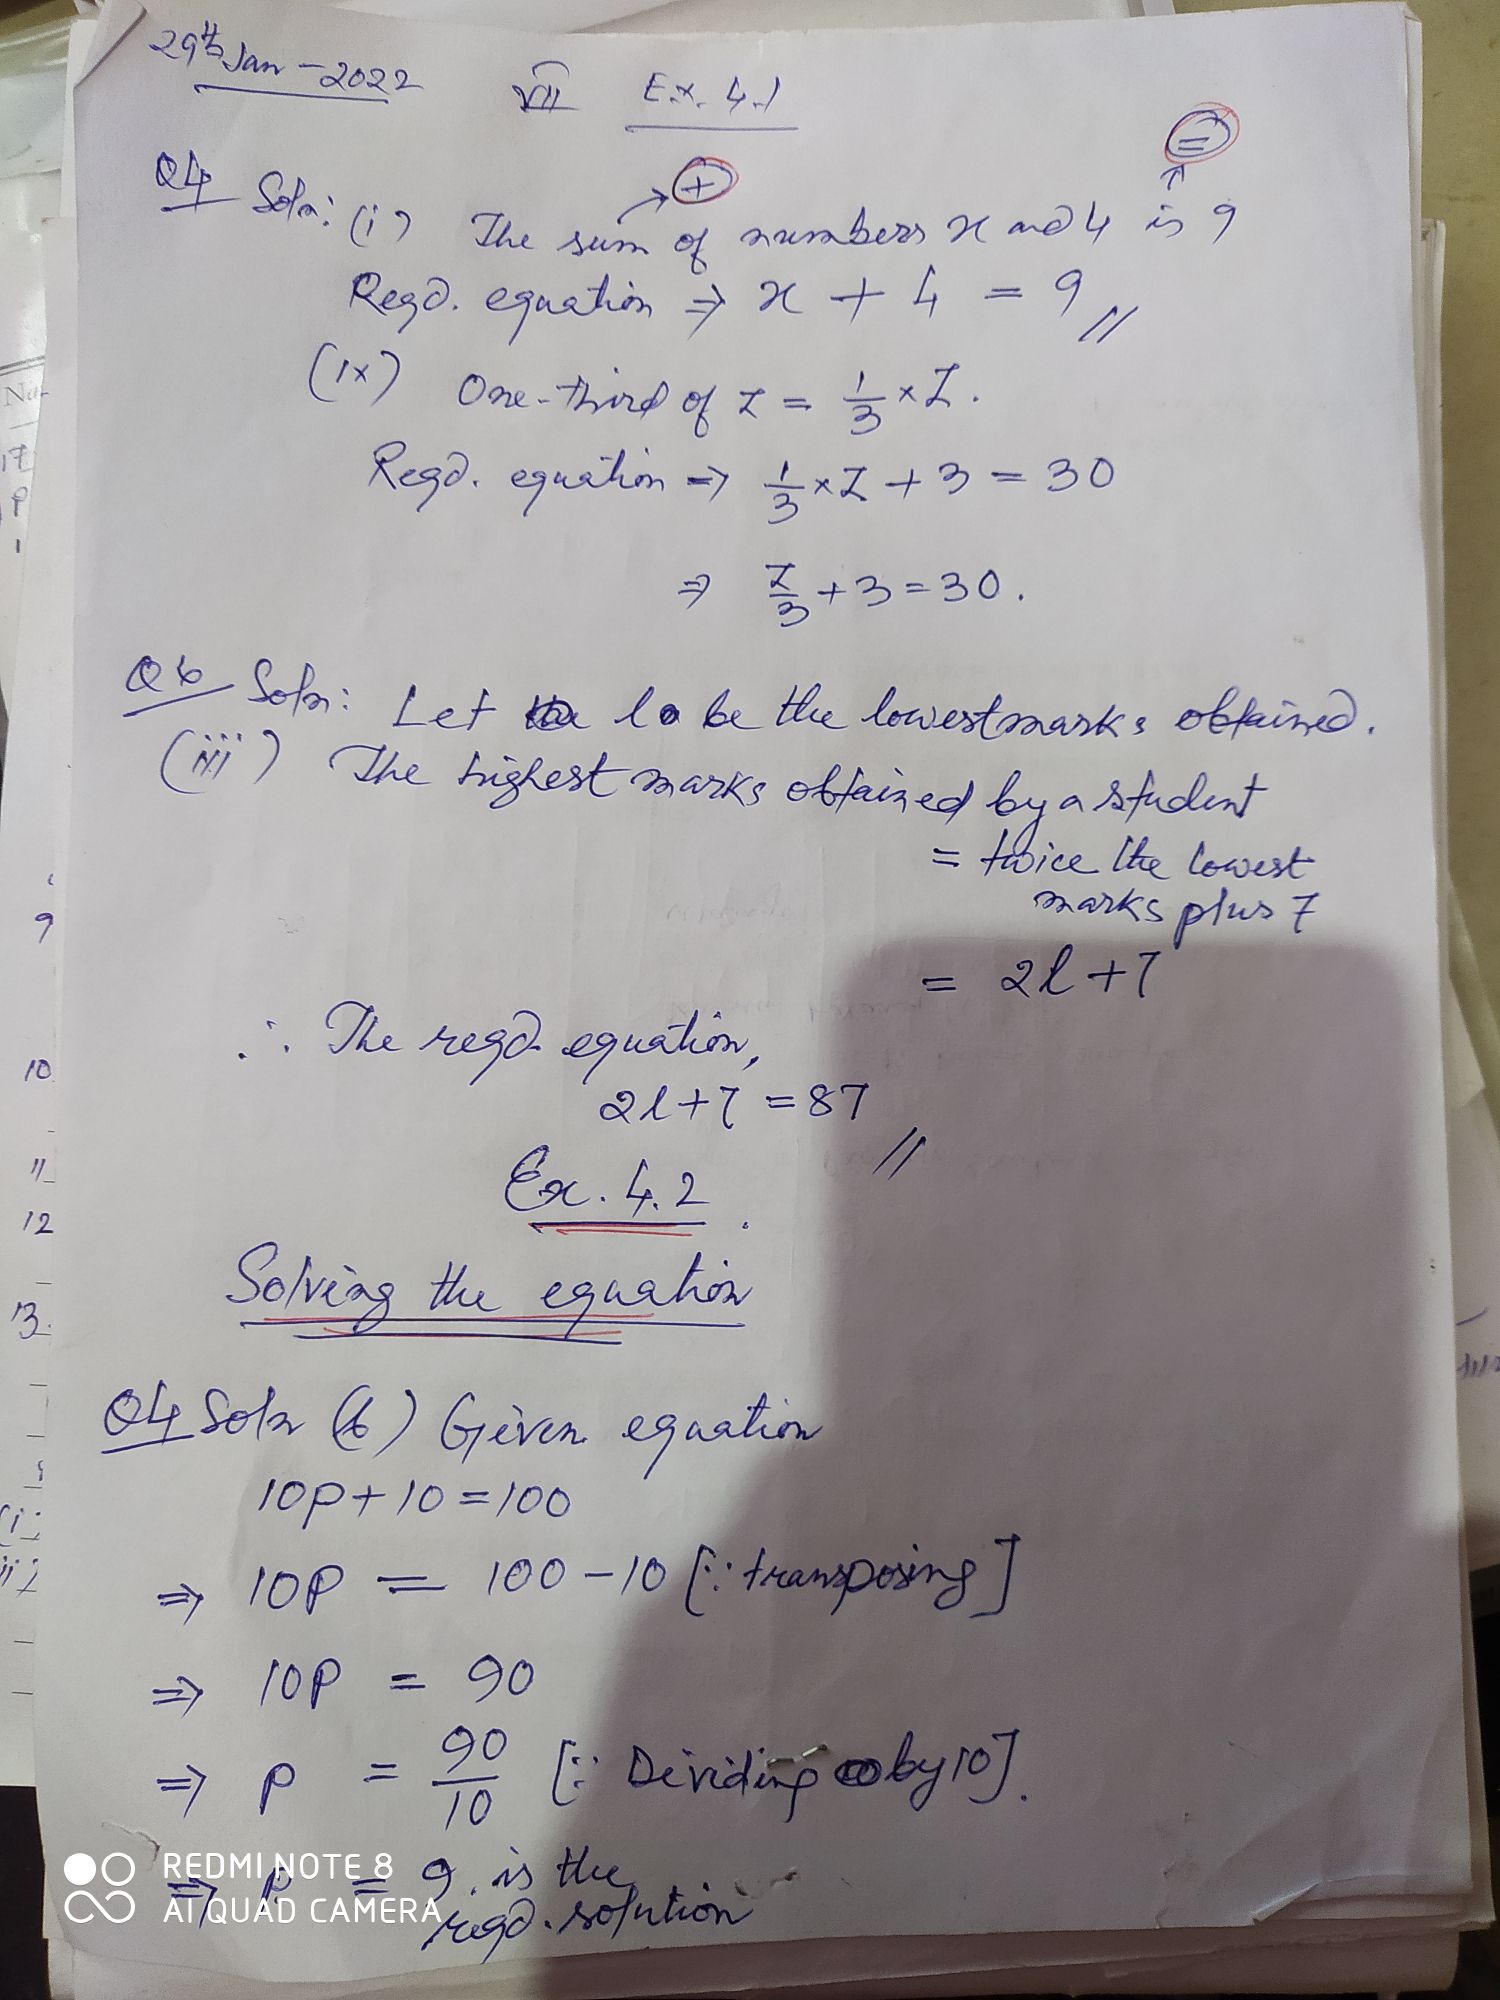 29th Jan - 2022 VII Ex. 4.1
+ =
Q4 Soln: (i) The sum of numbers x and 4 is 9
Reqd. equation ⇒ x + 4 = 9 //
(ix) One-third of z = 1/3 × z.
Reqd. equation ⇒ 1/3 × z + 3 = 30
⇒ z/3 + 3 = 30.
Q6 Soln: Let l be the lowest marks obtained.
(iii) The highest marks obtained by a student
= twice the lowest
marks plus 7
= 2l + 7
∴ The reqd. equation,
2l + 7 = 87 //
Ex. 4.2.
Solving the equation
Q4 Soln (b) Given equation
10p + 10 = 100
⇒ 10p = 100 - 10 [∵ transposing]
⇒ 10p = 90
⇒ p = 90/10 [∵ Dividing by 10].
⇒ p = 9. is the
reqd. solution
REDMI NOTE 8
AI QUAD CAMERA
Nu
17
p
1
9
10
11
12
13
(i)
ii)